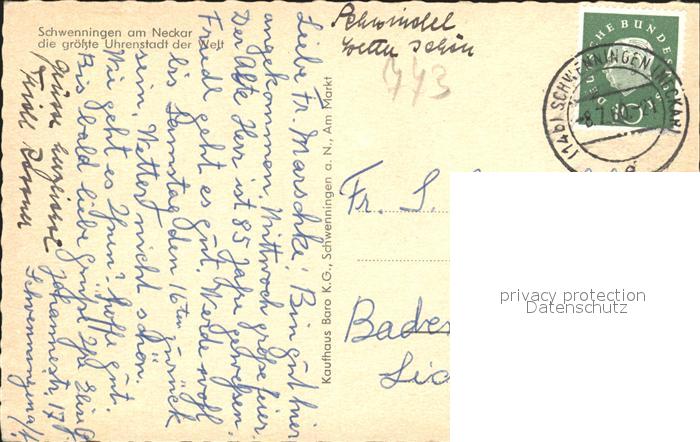 Schwenningen am Neckar
die größte Uhrenstadt der Welt
Liebe Fr. Marschke! Bin gut hier
angekommen. Mittwoch große Feier
Der Alte Herr ist 85 Jahre gewesen.
Friedl geht es gut. Werde wohl
bis Samstag den 16ten zurück
sein. Wetter nicht schön.
Wie geht es Ihnen? hoffe gut.
Bis bald liebe Grüße Ihre
Johannesstr. 17
Schwenningen a/N
Kaufhaus Baro K.G., Schwenningen a. N., Am Markt
Schwindel
Wetter schön
443
DEUTSCHE BUNDESPOST
10
(14b) SCHWENNINGEN (NECKAR)
-8.7.60-21
Fr. S.
Baden
privacy protection
Datenschutz